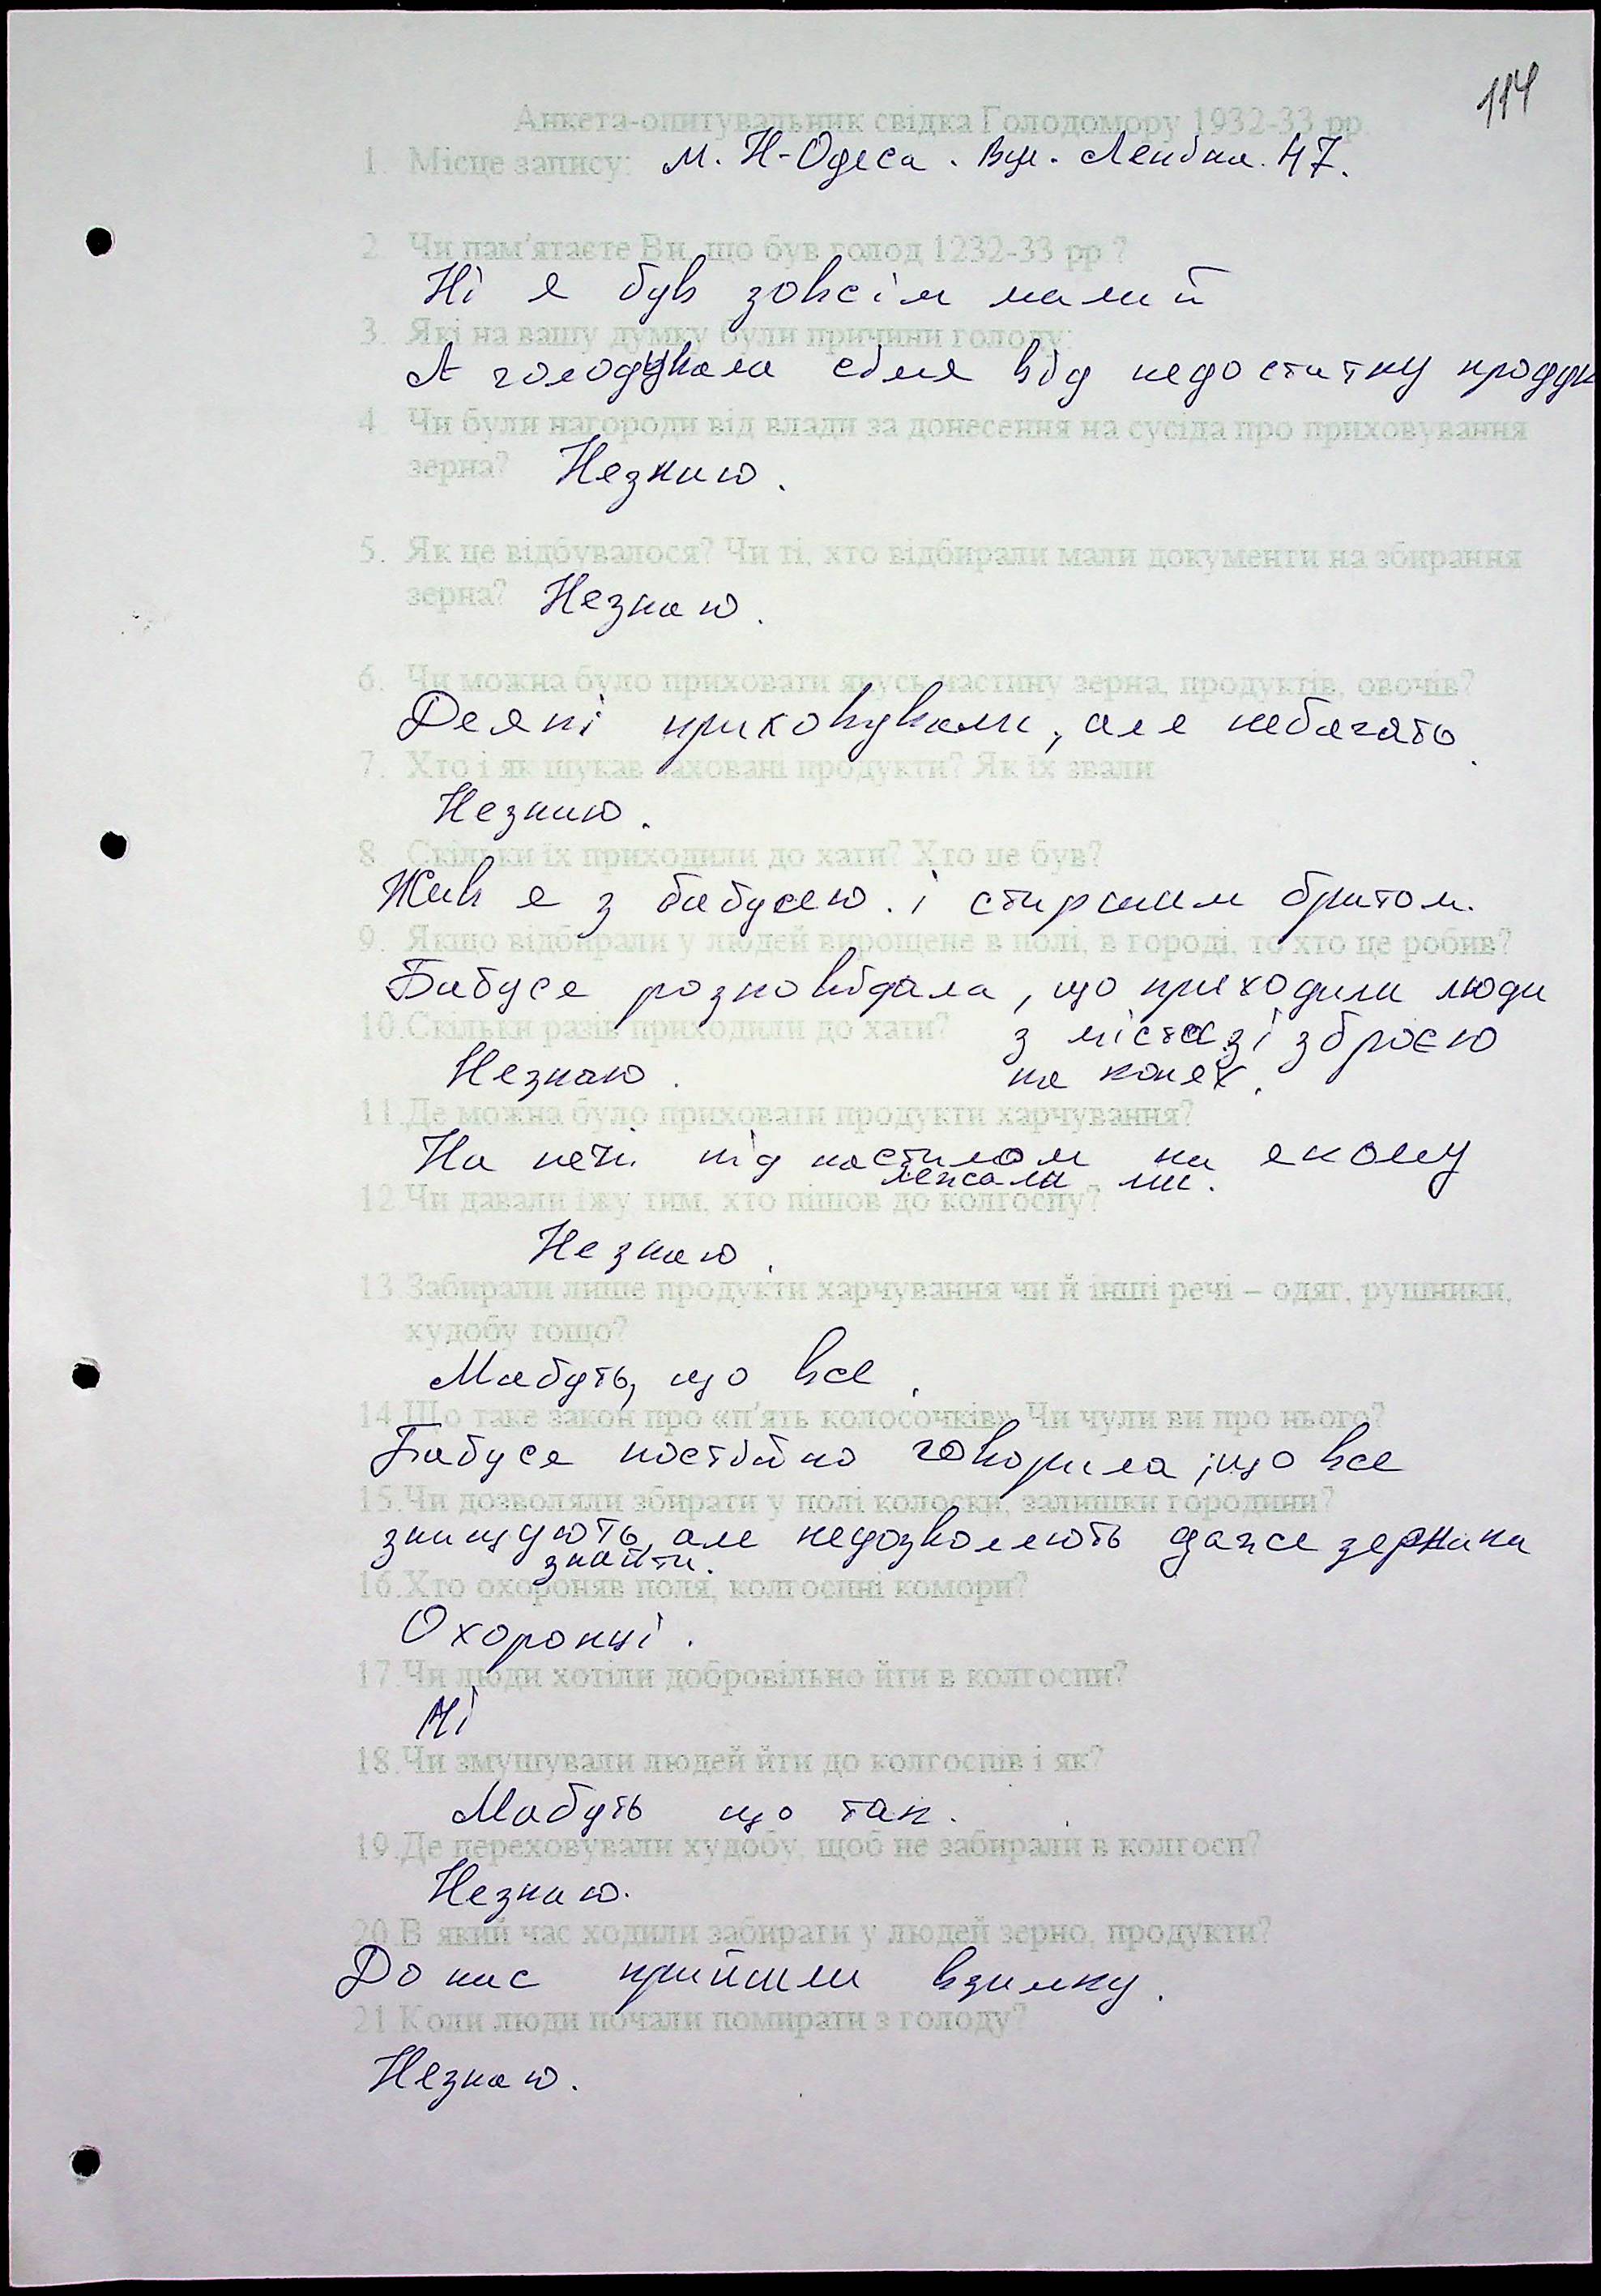 114
Анкета-опитувальник свідка Голодомору 1932-33 рр.
1. Місце запису: м. Н-Одеса. вул. Леніна. 47.
2. Чи пам'ятаєте Ви, що був голод 1232-33 рр.?
Ні я був зовсім малий
3. Які на вашу думку були причини голоду:
А голодувала сімя від недостатку продук
4. Чи були нагороди від влади за донесення на сусіда про приховування
зерна? Незнаю.
5. Як це відбувалося? Чи ті, хто відбирали мали документи на збирання
зерна? Незнаю.
6. Чи можна було приховати якусь частину зерна, продуктів, овочів?
Деякі приховували, але небагато.
7. Хто і як шукав заховані продукти? Як їх звали
Незнаю.
8. Скільки їх приходили до хати? Хто це був?
Жив я з бабусею. і старшим братом.
9. Якщо відбирали у людей вирощене в полі, в городі, то хто це робив?
Бабуся розповідала, що приходили люди
10.Скільки разів приходили до хати? з міста зі зброєю
Незнаю. на конях.
11.Де можна було приховати продукти харчування?
На печі під настилом на якому
лежали ми.
12.Чи давали їжу тим, хто пішов до колгоспу?
Незнаю.
13.Забирали лише продукти харчування чи й інші речі – одяг, рушники,
худобу тощо?
Мабуть, що все.
14.Що таке закон про «п'ять колосочків». Чи чули ви про нього?
Бабуся постійно говорила, що все
15.Чи дозволяли збирати у полі колоски, залишки городини?
знищують, але недозволяють даже зернини
знайти.
16.Хто охороняв поля, колгоспні комори?
Охоронці.
17.Чи люди хотіли добровільно йти в колгоспи?
Ні
18.Чи змушували людей йти до колгоспів і як?
Мабуть що так.
19.Де переховували худобу, щоб не забирали в колгосп?
Незнаю.
20.В який час ходили забирати у людей зерно, продукти?
До нас прийшли взимку.
21.Коли люди почали помирати з голоду?
Незнаю.